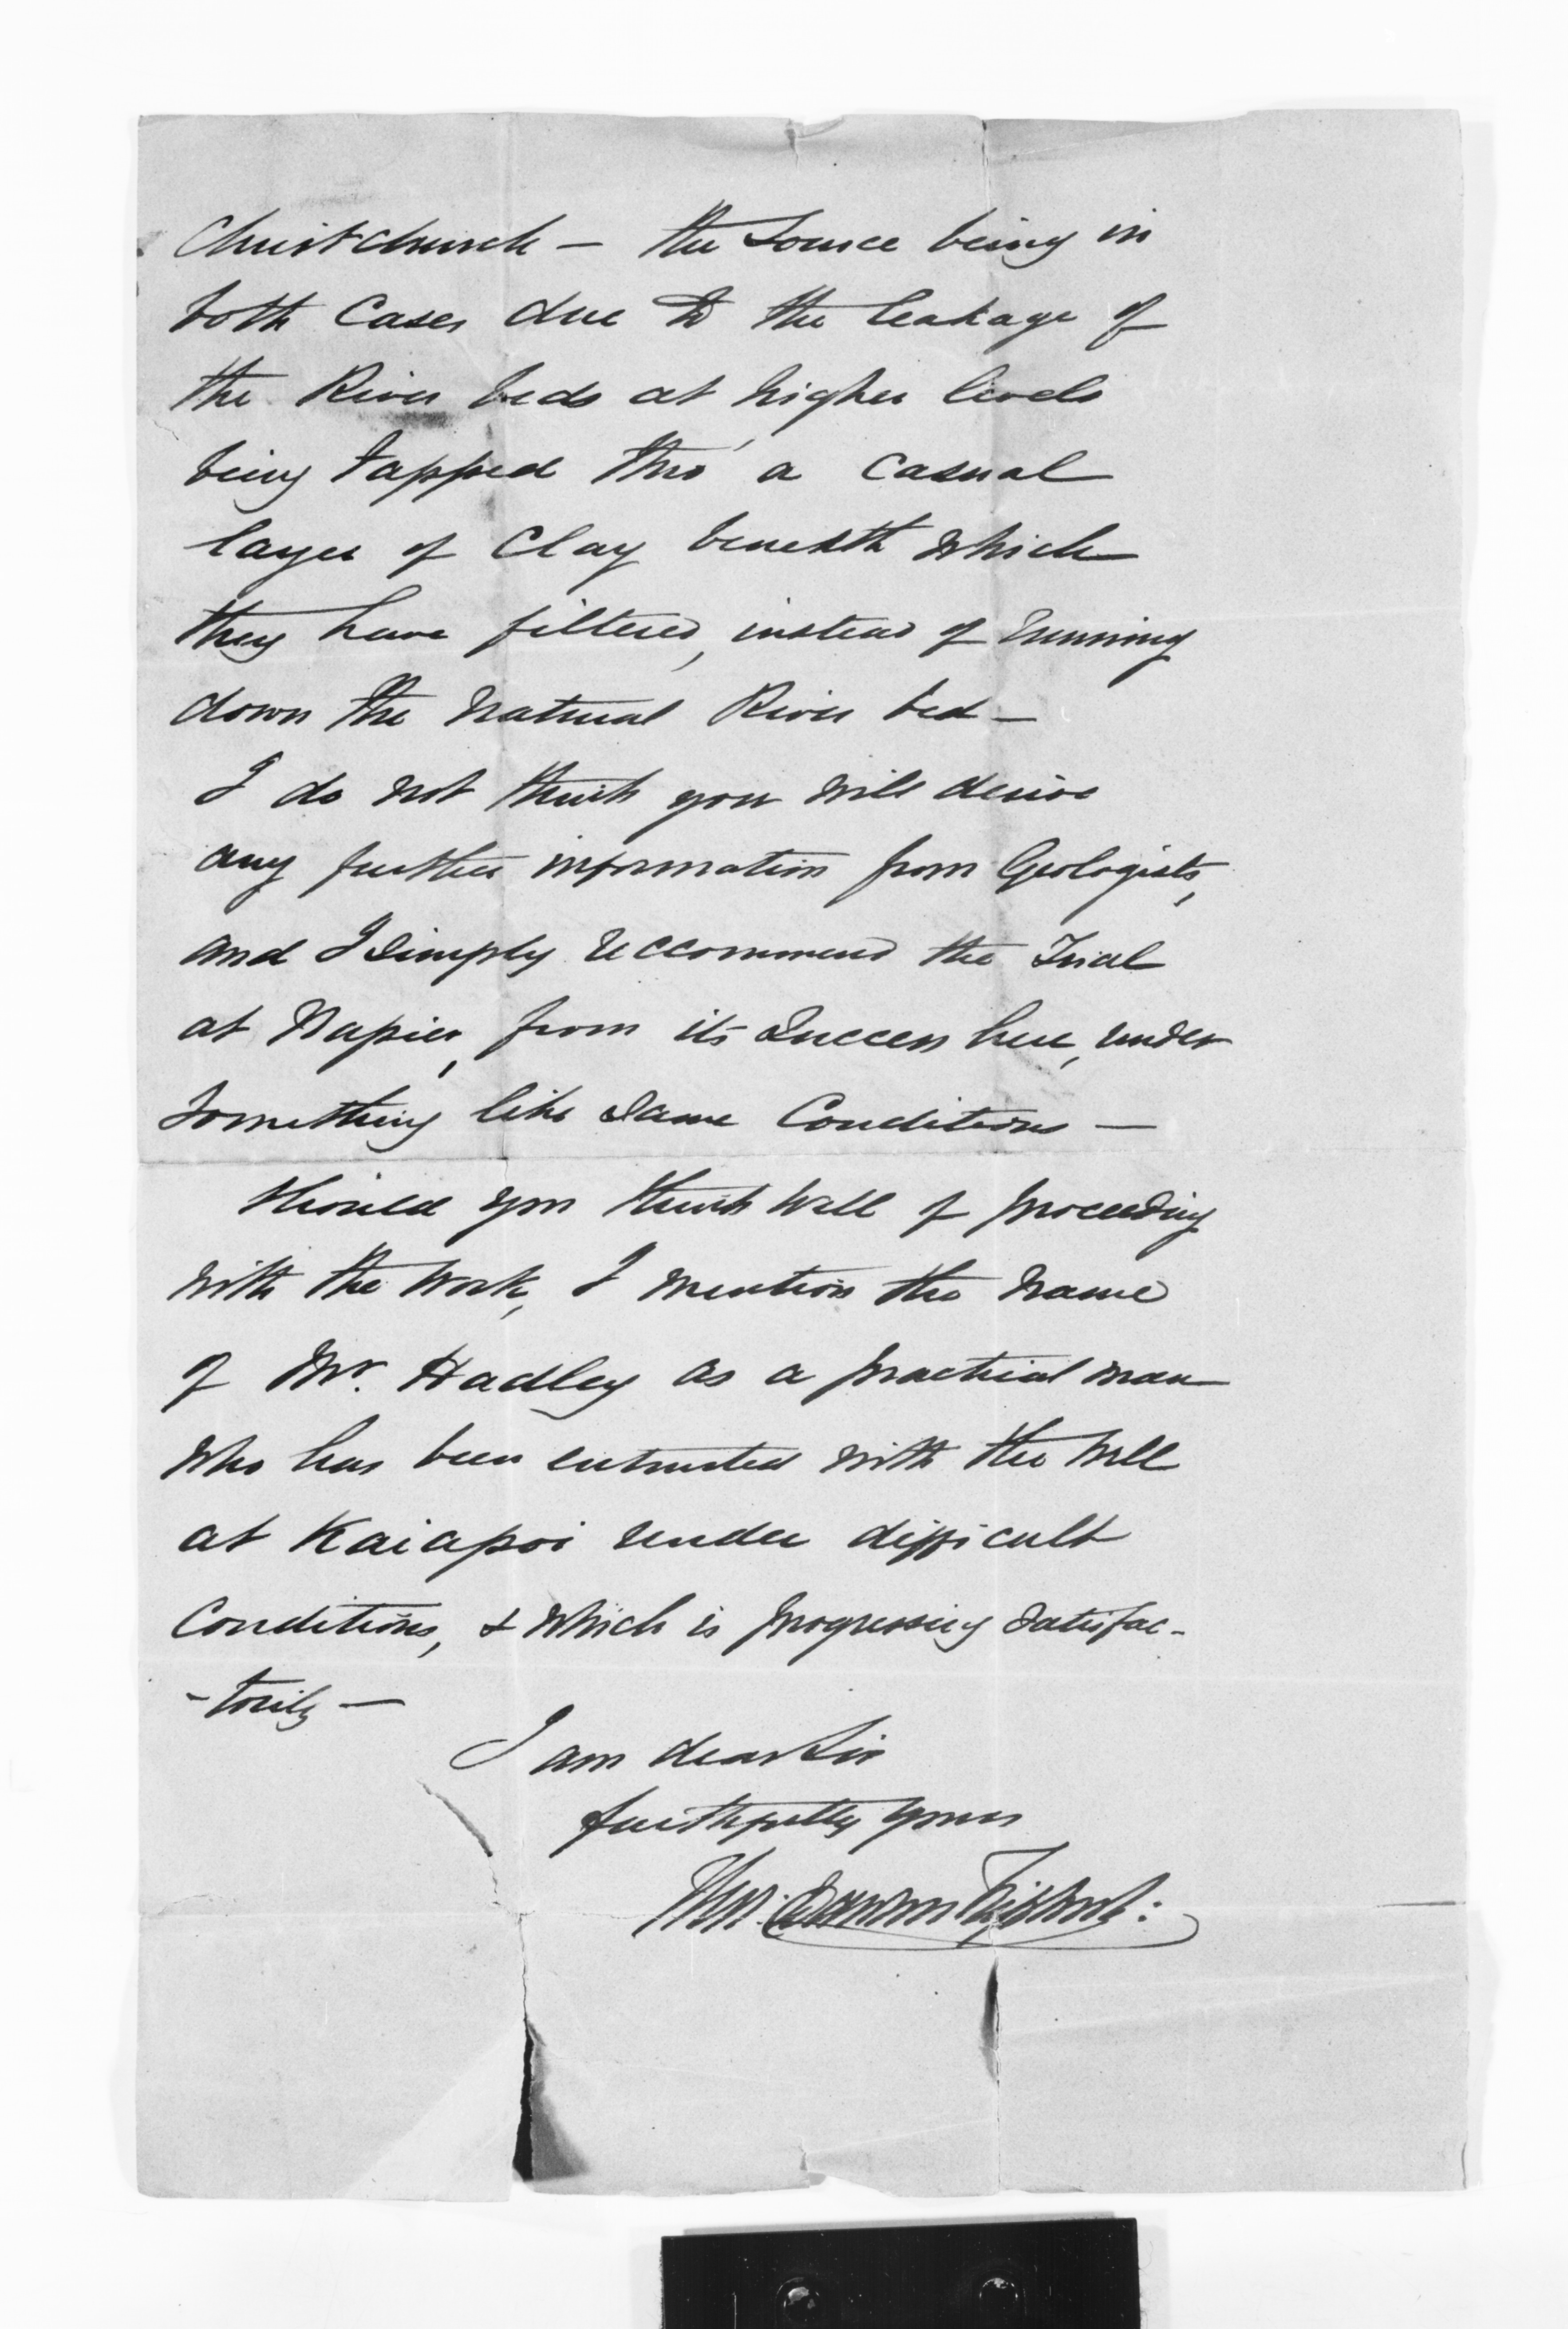 Christchurch — the source being in
both Cases due to the leakage of
the River beds at higher levels
being tapped thro' a casual
layer of Clay beneath which
they have filtered, instead of running
down the natural River bed —
I do not think you will derive
any further information from Geologists,
and I simply reccommend the Trial
at Napier, from its success here, under
something like same Conditions —
Should you think well of proceeding
with the work, I mention the name
of Mr. Hadley as a practical man
who has been entrusted with the well
at Kaiapoi under difficult
Conditions, & which is progressing satisfac-
-torily —
I am dear Sir
faithfully yours